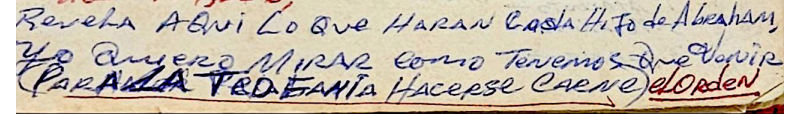 Revela AQUI Lo Que HARAN Cada Hijo de Abraham,
Yo Quiero MIRAR como Tenemos Que Venir
(PARA LA TEOFANIA HACERSE CARNE) el ORDEN